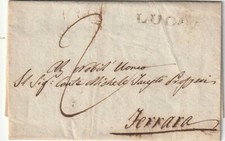 LUGO
2
Al Nobil Uomo
Il Sig.r Conte Michele
Ferrara